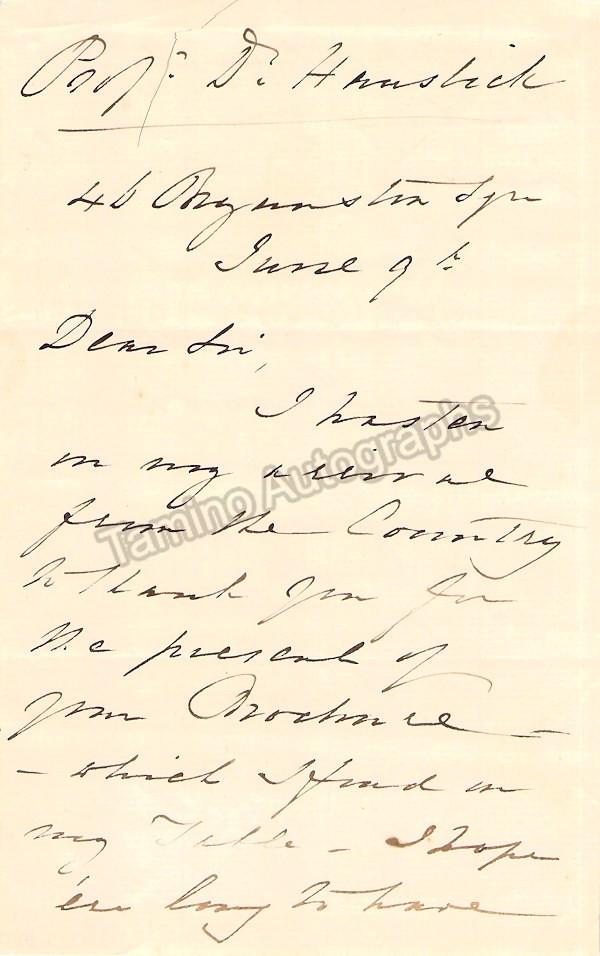 Profr. Dr. Hanslick
46 Bryanston Sqre
June 9th.
Dear Sir,
I hasten
on my arrival
from the Country
to thank you for
the present of
your Brochure –
– which I find on
my Table – I hope
'ere long to have
Tamino Autographs